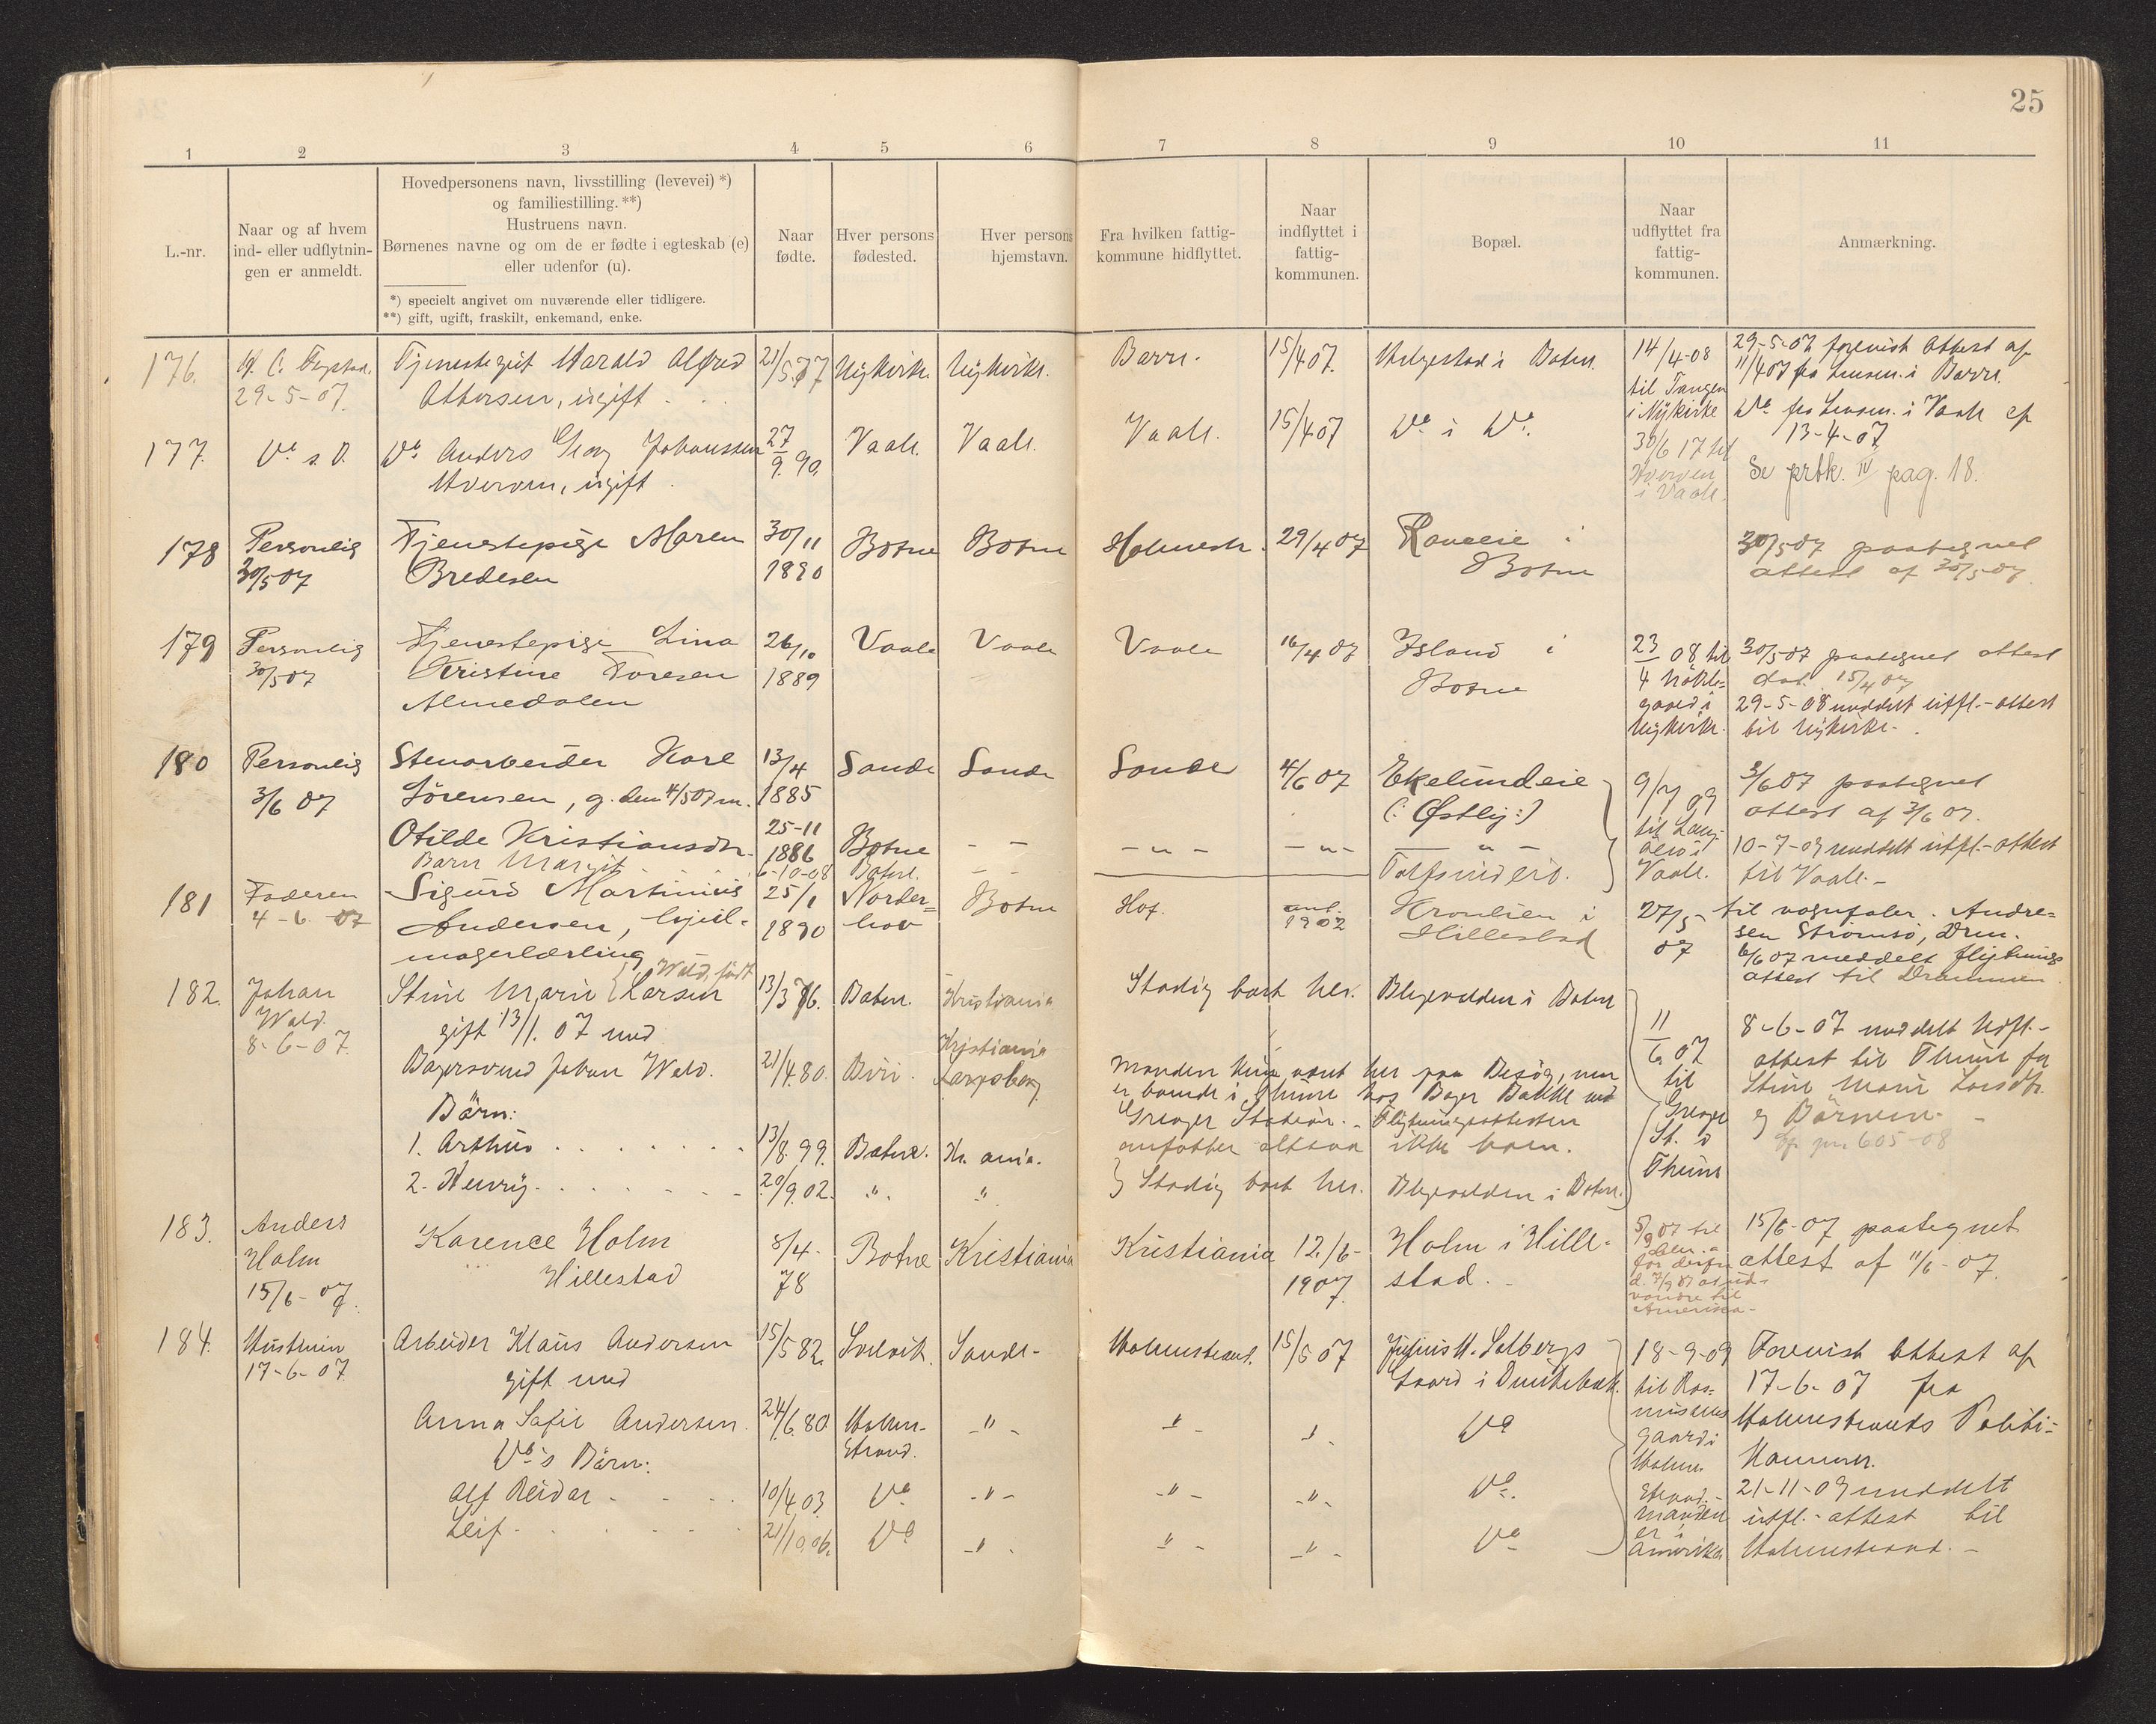 25
1 2 3 4 5 6 7 8 9 10 11
L.-nr.
Naar og af hvem
ind- eller udflytnin-
gen er anmeldt.
Hovedpersonens navn, livsstilling (levevei) *)
og familiestilling. **)
Hustruens navn.
Børnenes navne og om de er fødte i egteskab (e)
eller udenfor (u).
*) specielt angivet om nuværende eller tidligere.
**) gift, ugift, fraskilt, enkemand, enke.
Naar
fødte.
Hver persons
fødested.
Hver persons
hjemstavn.
Fra hvilken fattig-
kommune hidflyttet.
Naar
indflyttet i
fattig-
kommunen.
Bopæl.
Naar
udflyttet fra
fattig-
kommunen.
Anmærkning.
176.
29-5-07.
Tjenestegut Harald Alfred
Ottersen, ugift
21/5 77
Nykirke
Nykirke.
Borre.
15/4 07.
Helgestad i Botne.
14/4-08
til Tangen
i Nykirke
29-5-07 forevist Attest af
11/4 07 fra Lensm. i Borre.
177.
Do s. D.
Do Anders Georg Johanssen
Hvorven, ugift.
27/9. 90.
Vaale.
Vaale.
Vaale.
15/4 07
Do i Do.
30/6 17 til
Hvorven
i Vaale.
Do fra Lensm. i Vaale af
13-4-07
Se prtk. IV pag. 18.
178
Personlig
30/5 07
Tjenestepige Maren
Bredesen
30/11
1890
Botne
Botne
Holmestr.
29/4 07
i
Botne
30/5 07 paategnet
attest af 30/5 07.
179
Personlig
30/5 07
Tjenestepige Lina
Kristine Toresen
Almedalen
26/10
1889
Vaale
Vaale
Vaale
16/4 07
Island i
Botne
23/4 08 til
gaard i
Nykirke.
30/5 07 paategnet attest
dat. 15/4 07
29-5-08 meddelt utfl.-attest
til Nykirke.
180
Personlig
3/6 07
Stenarbeider Karl
Sørensen, g. den 4/5 07 m.
Otilde Kristiansdtr.
Barn Margit
13/4
1885
25-11
1886
6-10-08
Sande
Botne
Botne.
Sande
- -
- -
Sande
- " -
4/6 07
- " -
Ekelundeie
(: Østlij :)
- " -
9/7 09
til
i
Vaale.
3/6 07 paategnet
attest af 3/6 07.
10-7-09 meddelt utfl.-attest
til Vaale.-
181
Faderen
4-6-07
Sigurd Martinius
Andersen, hjul-
magerlærling
25/1
1890
Norder-
hov
Botne
Hof.
ank.
1902
Kronlien i
Hillestad
27/5
07
til vognfabr. Andre-
sen Strømsø, Drm.
6/6 07 meddelt flytnings
attest til Drammen.
182.
Johan
Wold.
8-6-07.
Stine Marie { Wold, født
Larsen
gift 13/1. 07 med
Bagersvend Johan Wold.
Børn:
1. Arthur
2. Henry
13/3 76.
21/4 80.
13/8. 99.
20/9. 02.
Botne.
Biri.
Botne.
".
Kristiania
Kristiania
Kr. ania.
"
Stadig boet her.
Blegevolden i Botne
Manden kun været her paa Besøg, men
er boende i Thune hos Bager Bakke ved
Greager Station. - Flytningsattesten
omfatter altsaa ikke ham.
} Stadig boet her.
Blegevolden i Botne.
11/6 07
til
Greager
St. i
Thune
8-6-07 meddelt Udfl.-
attest til Thune for
Stine Marie Larsdtr.
og Børnene. -
605-08
183.
Anders
Holm
15/6-07.
Karence Holm
Hillestad
8/4-
78
Botne
Kristiania
Kristiania
12/6-
1907.
Holm i Hille-
stad.
5/9 07 til
for derfra
d. 7/9 07 at ud-
vandre til
Amerika-
15/6-07 paategnet
attest af 11/6-07.
184.
Hustruen
17-6-07.
Arbeider Klaus Andersen
gift med
Anna Sofie Andersen.
Do's Børn:
Alf Reidar
Leif
15/5 82.
24/6. 80
10/4 03.
21/10. 06.
Svelvik.
Holm-
strand.
Do
Do
Sande-
- " -
- " -
- " -
Holmestrand.
- " -
- " -
- " -
15/5 07
- " -
- " -
- " -
Julius H. Solbergs
Gaard i Dunkebæk.
Do
Do.
Do
18-9-09
til Ras-
mussens
gaard i
Holme-
strand.-
Manden
er i
Amerika
Forevist Attest af
17-6-07 fra
Holmestrands Politi-
kammer.
21-11-09 meddelt
utfl.-attest til
Holmestrand.-